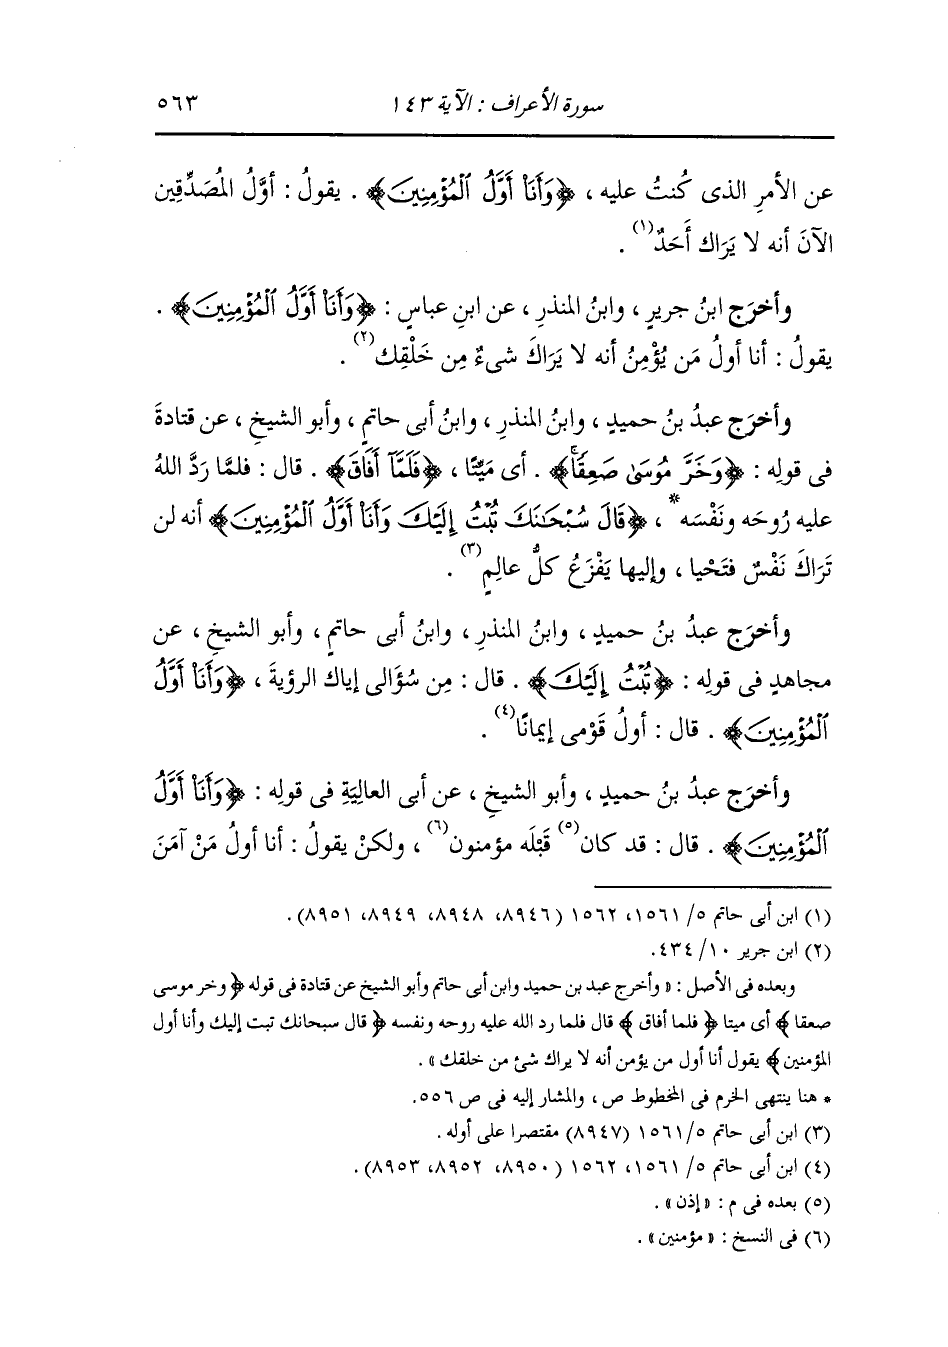 سورة الأعراف : الآية ١٤٣ ٥٦٣
عن الأمرِ الذى كُنتُ عليه ، ﴿وَأَنَا۠ أَوَّلُ ٱلْمُؤْمِنِينَ﴾ . يقولُ : أوَّلُ المُصَدِّقِين
الآنَ أنه لا يَرَاك أَحَدٌ(١) .
وأخرَج ابنُ جريرٍ ، وابنُ المنذرِ ، عن ابنِ عباسٍ : ﴿وَأَنَا۠ أَوَّلُ ٱلْمُؤْمِنِينَ﴾ .
يقولُ : أنا أولُ مَن يُؤْمِنُ أنه لا يَرَاكَ شىءٌ مِن خَلْقِك(٢) .
وأخرَج عبدُ بنُ حميدٍ ، وابنُ المنذرِ ، وابنُ أبى حاتمٍ ، وأبو الشيخِ ، عن قتادةَ
فى قولِه : ﴿وَخَرَّ مُوسَىٰ صَعِقًاۚ﴾ . أى مَيِّتًا ، ﴿فَلَمَّآ أَفَاقَ﴾ . قال : فلمَّا رَدَّ اللهُ
عليه رُوحَه ونَفْسَه* ، ﴿قَالَ سُبْحَٰنَكَ تُبْتُ إِلَيْكَ وَأَنَا۠ أَوَّلُ ٱلْمُؤْمِنِينَ﴾ أنه لن
تَرَاكَ نَفْسٌ فتَحْيا ، وإليها يَفْزَعُ كلُّ عالِمٍ(٣) .
وأخرَج عبدُ بنُ حميدٍ ، وابنُ المنذرِ ، وابنُ أبى حاتمٍ ، وأبو الشيخِ ، عن
مجاهدٍ فى قولِه : ﴿تُبْتُ إِلَيْكَ﴾ . قال : مِن سُؤَالى إياك الرؤيةَ ، ﴿وَأَنَا۠ أَوَّلُ
ٱلْمُؤْمِنِينَ﴾ . قال : أولُ قَوْمى إيمانًا(٤) .
وأخرَج عبدُ بنُ حميدٍ ، وأبو الشيخِ ، عن أبى العالِيَةِ فى قولِه : ﴿وَأَنَا۠ أَوَّلُ
ٱلْمُؤْمِنِينَ﴾ . قال : قد كان(٥) قَبْلَه مؤمنون(٦) ، ولكنْ يقولُ : أنا أولُ مَنْ آمَنَ
(١) ابن أبى حاتم ٥/ ١٥٦١، ١٥٦٢ (٨٩٤٦، ٨٩٤٨، ٨٩٤٩، ٨٩٥١).
(٢) ابن جرير ١٠/ ٤٣٤.
وبعده فى الأصل : « وأخرج عبد بن حميد وابن أبى حاتم وأبو الشيخ عن قتادة فى قوله ﴿ وخر موسى
صعقا ﴾ أى ميتا ﴿ فلما أفاق ﴾ قال فلما رد الله عليه روحه ونفسه ﴿ قال سبحانك تبت إليك وأنا أول
المؤمنين ﴾ يقول أنا أول من يؤمن أنه لا يراك شئ من خلقك » .
* هنا ينتهى الخرم فى المخطوط ص ، والمشار إليه فى ص ٥٥٦.
(٣) ابن أبى حاتم ٥/ ١٥٦١ (٨٩٤٧) مقتصرا على أوله .
(٤) ابن أبى حاتم ٥/ ١٥٦١، ١٥٦٢ (٨٩٥٠، ٨٩٥٢، ٨٩٥٣).
(٥) بعده فى م : « إذن » .
(٦) فى النسخ : « مؤمنين » .